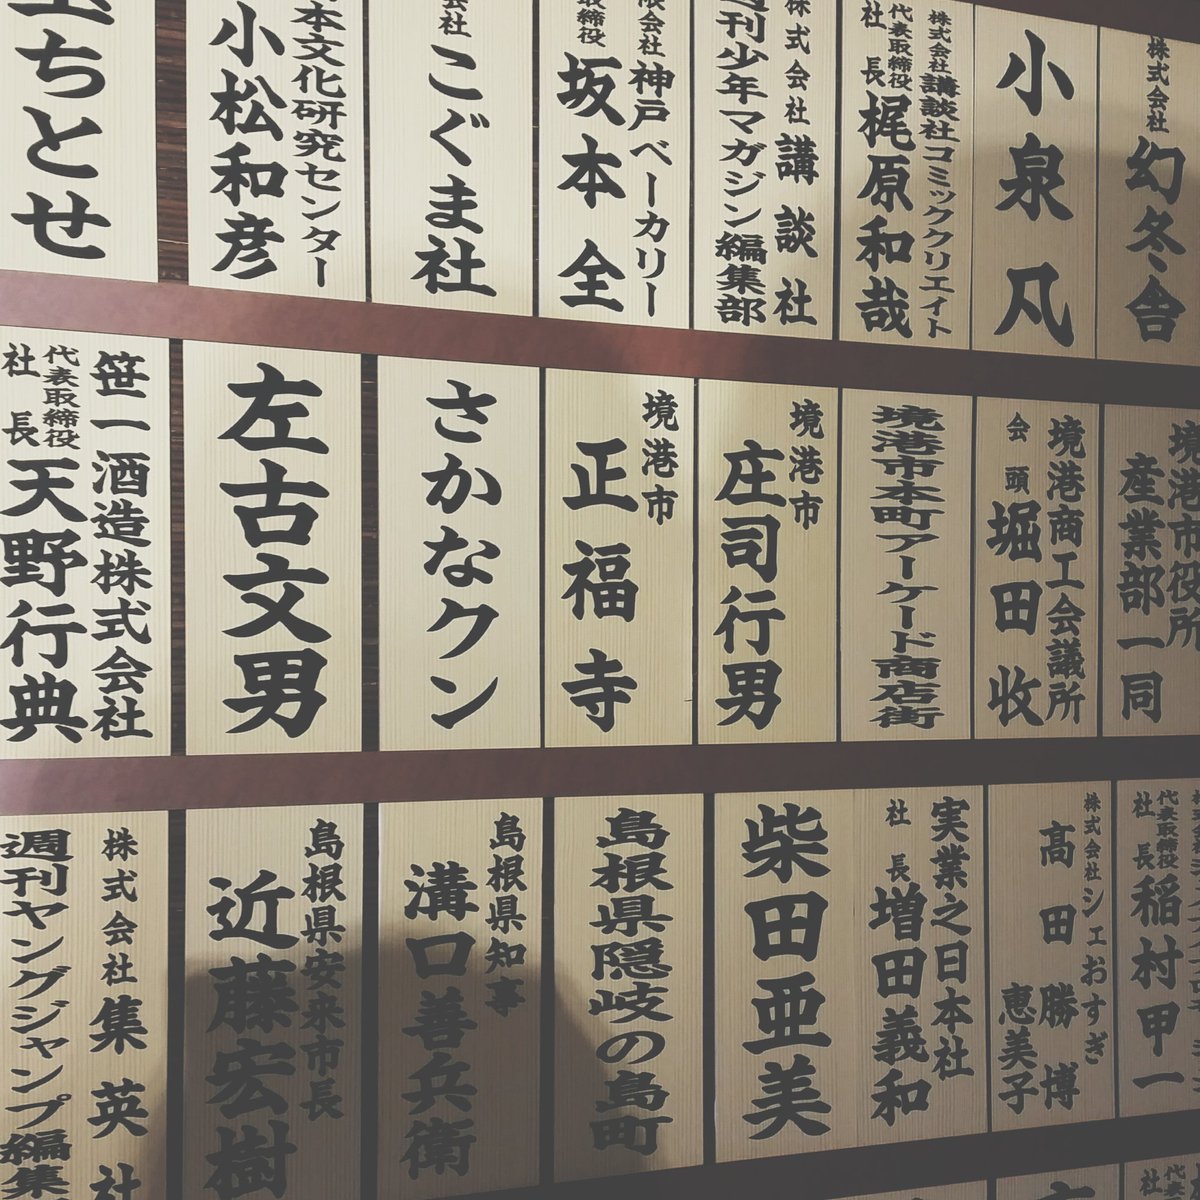 株式会社
幻冬舎
小泉凡
株式会社講談社コミッククリエイト
代表取締役
社長
梶原和哉
株式会社講談社
週刊少年マガジン編集部
神戸ベーカリー
坂本全
こぐま社
本文化研究センター
小松和彦
ちとせ
境港市役所
産業部一同
境港商工会議所
会頭
堀田收
境港市本町アーケード商店街
境港市
庄司行男
境港市
正福寺
さかなクン
左古文男
笹一酒造株式会社
代表取締役
社長
天野行典
代表取締役
社長
稲村甲一
株式会社シェおすぎ
髙田勝博
恵美子
実業之日本社
社長
増田義和
柴田亜美
島根県隠岐の島町
島根県知事
溝口善兵衛
島根県安来市長
近藤宏樹
株式会社集英社
週刊ヤングジャンプ編集